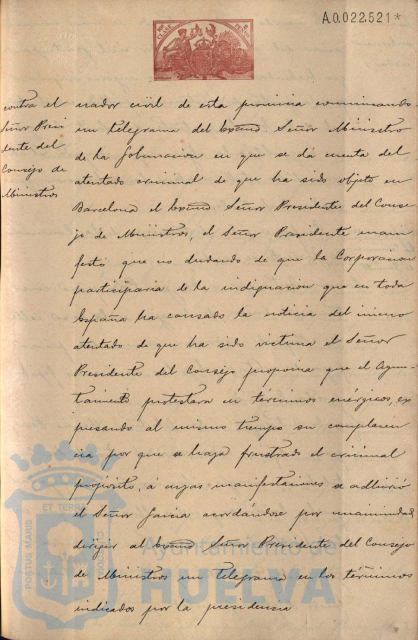 A.0.022.521*
contra el
Señor Presi
dente del
Consejo de
Ministros
nador civil de esta provincia comunicando
un telegrama del Excmo. Señor Ministro
de la Gobernacion en que se dá cuenta del
atentado criminal de que ha sido objeto en
Barcelona el Excmo. Señor Presidente del Conse-
jo de Ministros, el Señor Presidente mani
festó que no dudando de que la Corporacion
participaria de la indignacion que en toda
España ha causado la noticia del inicuo
atentado de que ha sido victima el Señor
Presidente del Consejo proponia que el Ayun-
tamiento protestara en términos enérgicos, ex
presando al mismo tiempo su complacen
cia por que se haya frustrado el criminal
propósito, á cuyas manifestaciones se adhirió
el Señor Garcia acordándose por unanimidad
dirigir al Excmo Señor Presidente del Consejo
de Ministros un telegrama en los términos
indicados por la presidencia
PORTUS MARIS ET TERRÆ
Ayuntamiento de
HUELVA